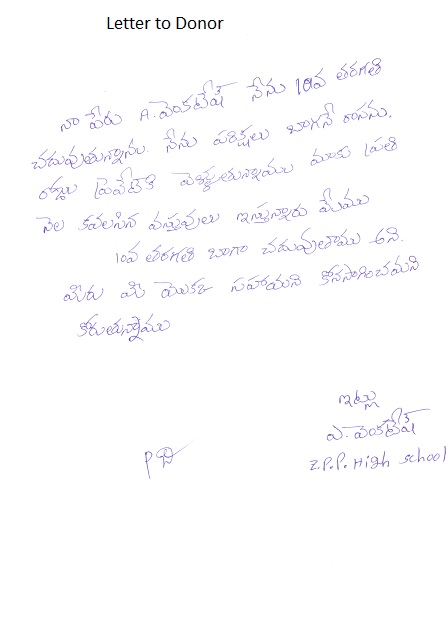 Letter to Donor
నా పేరు A. వెంకటేష్ నేను 10వ తరగతి
చదువుతున్నాను. నేను పరిక్షలు బాగానే రాసాను.
రోజు ప్రైవేట్‌కి వెళ్ళుతున్నాము మాకు ప్రతి
నెల కవలసిన వస్తువులు ఇస్తున్నారు మేము
10వ తరగతి బాగా చదువుతాము అని.
మీరు మీ యొక్క సహాయని కోనసాగించమని
కోరుతున్నాము
ఇట్లు
ఎ. వెంకటేష్
Z.P.P. High school